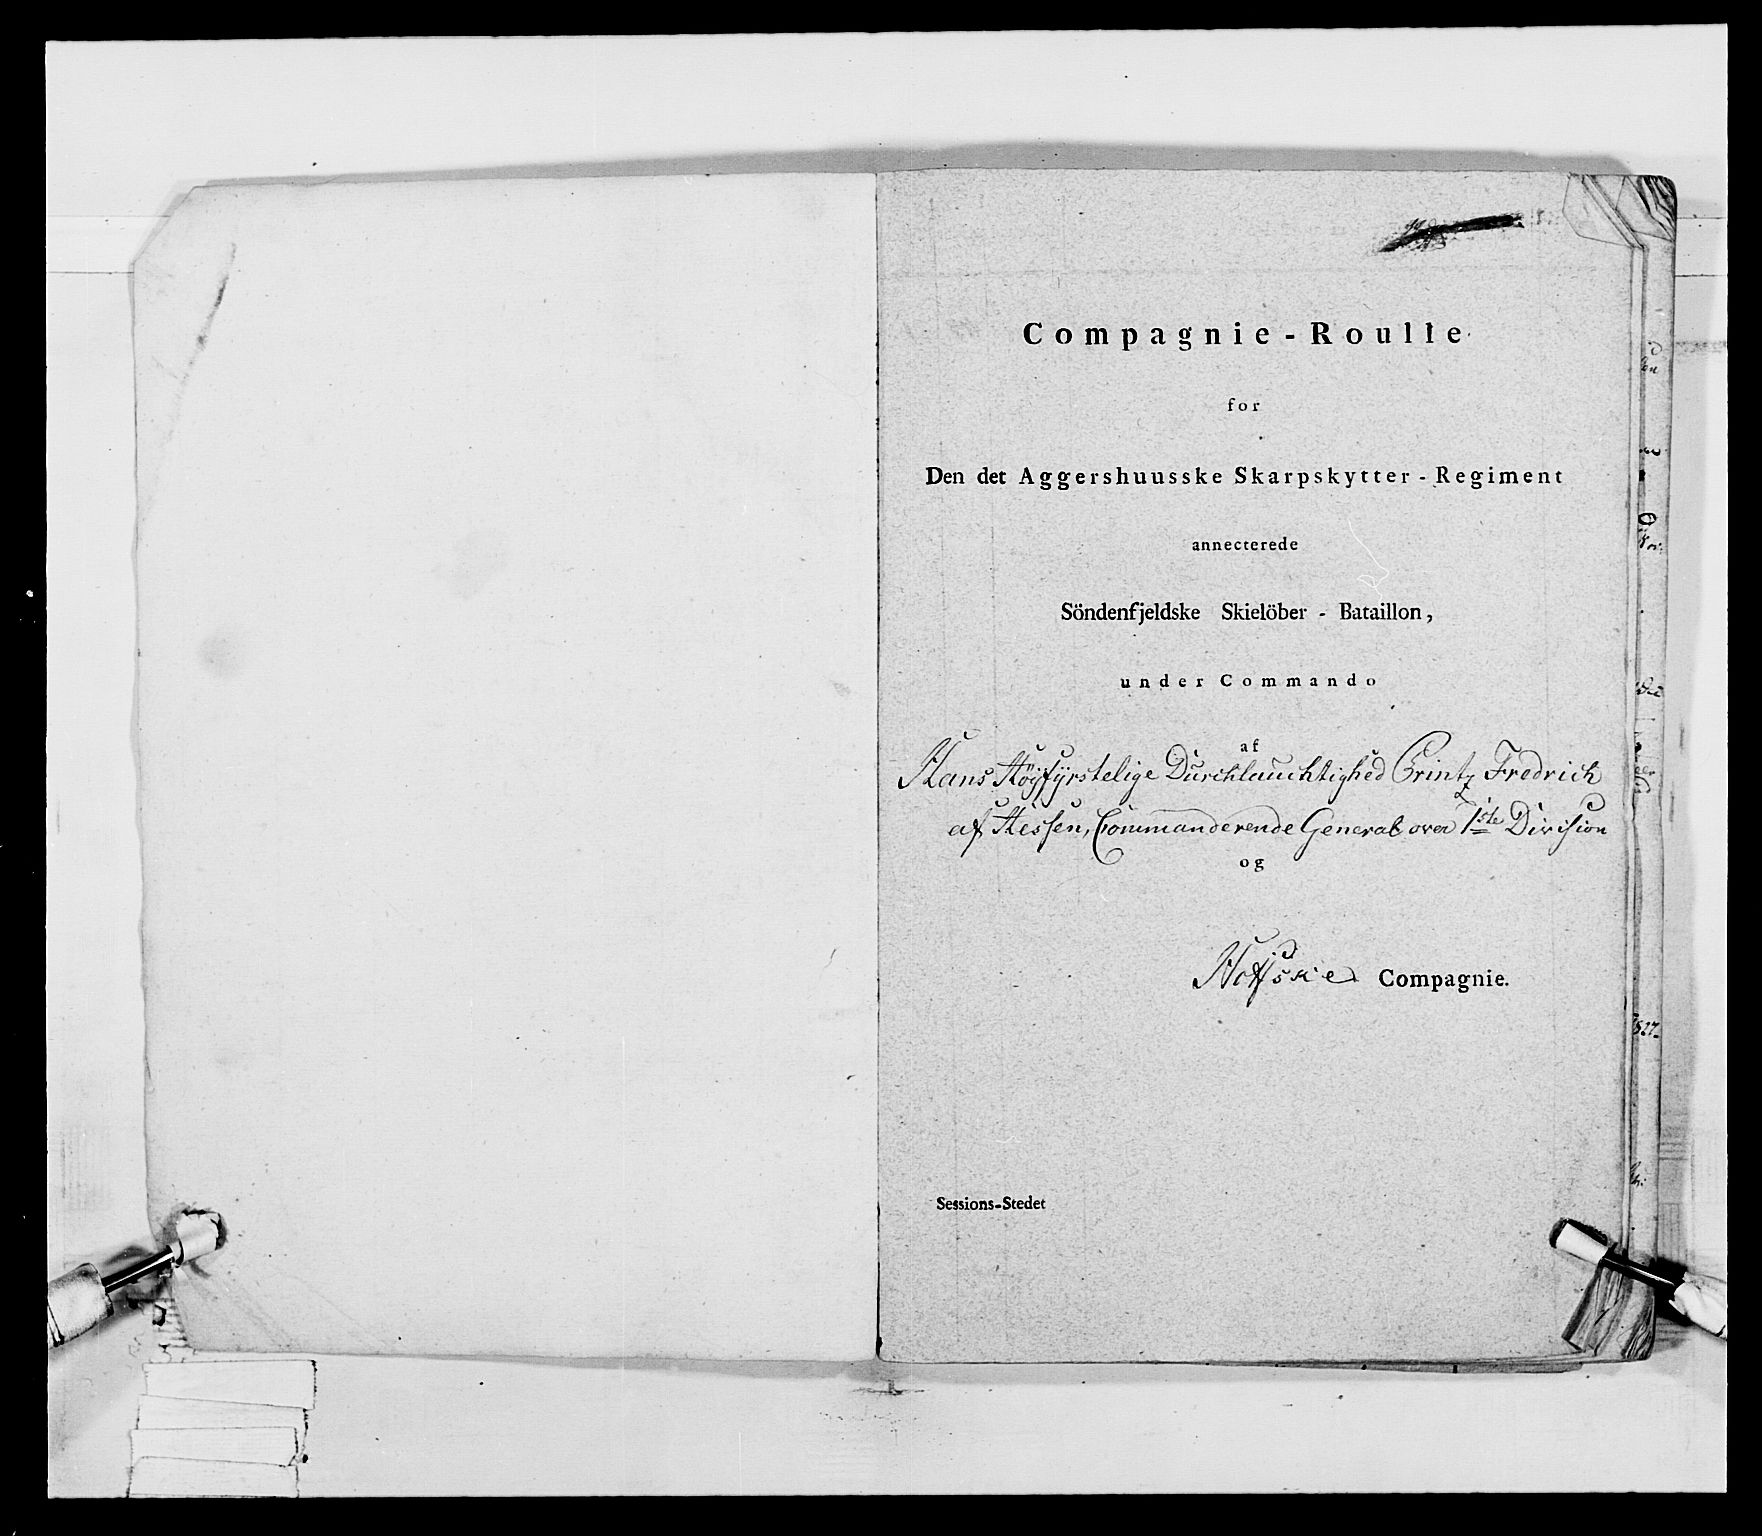 Compagnie-Roulle
for
Den det Aggershuusske Skarpskytter-Regiment
annecterede
Söndenfjeldske Skielöber-Bataillon,
under Commando
af
Hans Höyfyrstelige Durchlauchtighed Printz Fredrich
af Hessen, Commanderende General over 1ste Division
og
Hoffske Compagnie.
Sessions-Stedet